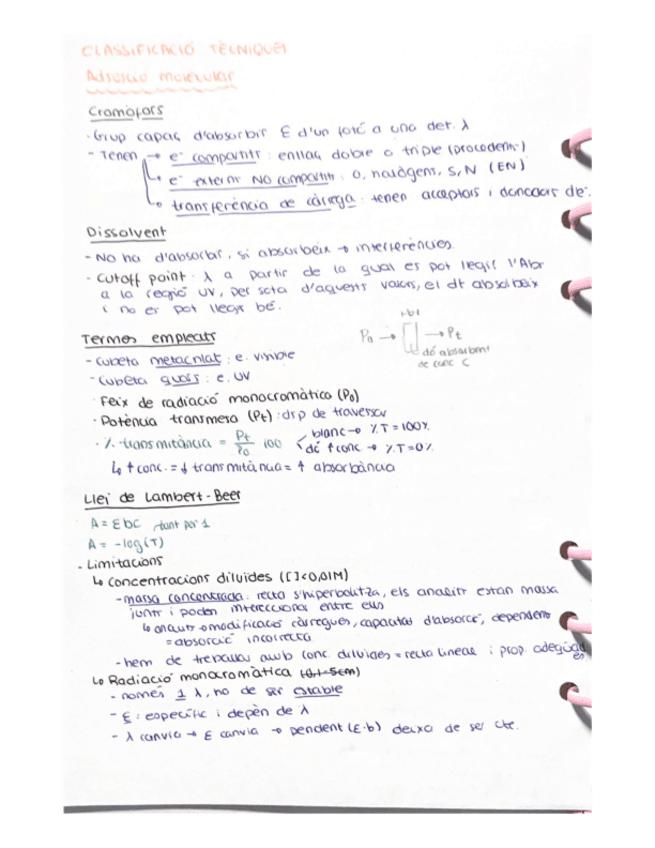 CLASSIFICACIÓ TÈCNIQUES
Adsorció molecular
Cromòfors
- Grup capaç d'absorbir E d'un fotó a una det. λ
- Tenen → e⁻ compartits: enllaç doble o triple (procedents)
→ e⁻ externs NO compartits: O, halògens, S, N (EN)
→ transferència de càrrega: tenen acceptors i donadors de⁻.
Dissolvent
- No ha d'absorbir, si absorbeix → interferències
- Cutoff point: λ a partir de la qual es pot llegir l'Abr
a la regió UV, per sota d'aquests valors, el dt absorbeix
i no es pot llegir bé.
Termes empleats
P₀ → → Pt
dó absorbent
de conc C
- Cubeta metacrilat: e. visible
- Cubeta quars: e. UV
· Feix de radiació monocromàtica (P₀)
· Potència transmesa (Pt): dsp de travessar
· % transmitància = Pt/P₀ · 100
blanc → %T = 100%
dó ↑conc → %T = 0%
↳ ↑ conc. = ↓ transmitància = ↑ absorbància
Llei de Lambert-Beer
A = Ɛbc → tant per 1
A = -log(T)
- Limitacions
↳ Concentracions diluïdes ([ ]<0,01M)
- massa concentrada: recta s'hiperbolitza, els analits estan massa
junts i poden interaccionar entre ells
↳ modificació càrregues, capacitat d'absorció,
= absorció incorrecta
- hem de treballar amb conc. diluïdes = recta lineal i prop. adequades
↳ Radiació monocromàtica (0,1-5cm)
- només 1 λ, ha de ser estable
- Ɛ: específic i depèn de λ
- λ canvia → Ɛ canvia → pendent (Ɛ·b) deixa de ser cte.